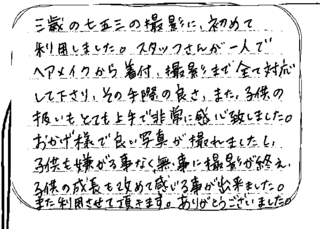 三歳の七五三の撮影に、初めて
利用しました。スタッフさんが一人で
ヘアメイクから着付、撮影まで全て対応
して下さり、その手際の良さ、また、子供の
扱いもとても上手で非常に感心致しました。
おかげ様で良い写真が撮れましたし、
子供も嫌がる事なく無事に撮影が終え、
子供の成長も改めて感じる事が出来ました。
また利用させて頂きます。ありがとうございました。